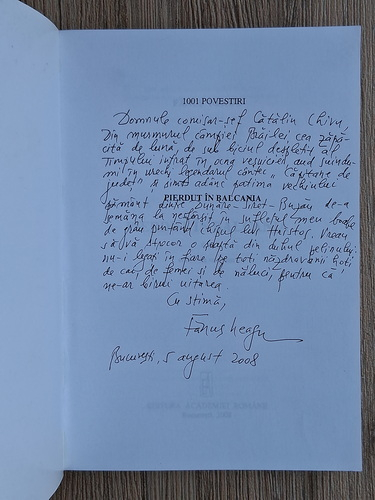 1001 POVESTIRI
Domnule comisar-șef Cătălin Chivu,
Din murmurul câmpiei Brăilei cea zăpă-
cită de lună, de sub biciul despletit al
Timpului intrat în ocna veșniciei aud suindu-
mi în urechi legendarul cântec „Căpitane de
județ" și simt adânc patima vechiului
pământ dintre Dunăre - Siret - Buzău de-a
PIERDUT ÎN BALCANIA
semăna la nesfârșit în sufletul meu boabe
de grâu purtând chipul lui Hristos. Vreau
să vă strecor o șoaptă din duhul pelinului:
nu-i legați în fiare pe toți năzdrăvanii hoți
de cai, de femei și de năluci, pentru că
ne-ar birui uitarea.
Cu stimă,
Fănuș Neagu
București, 5 august 2008